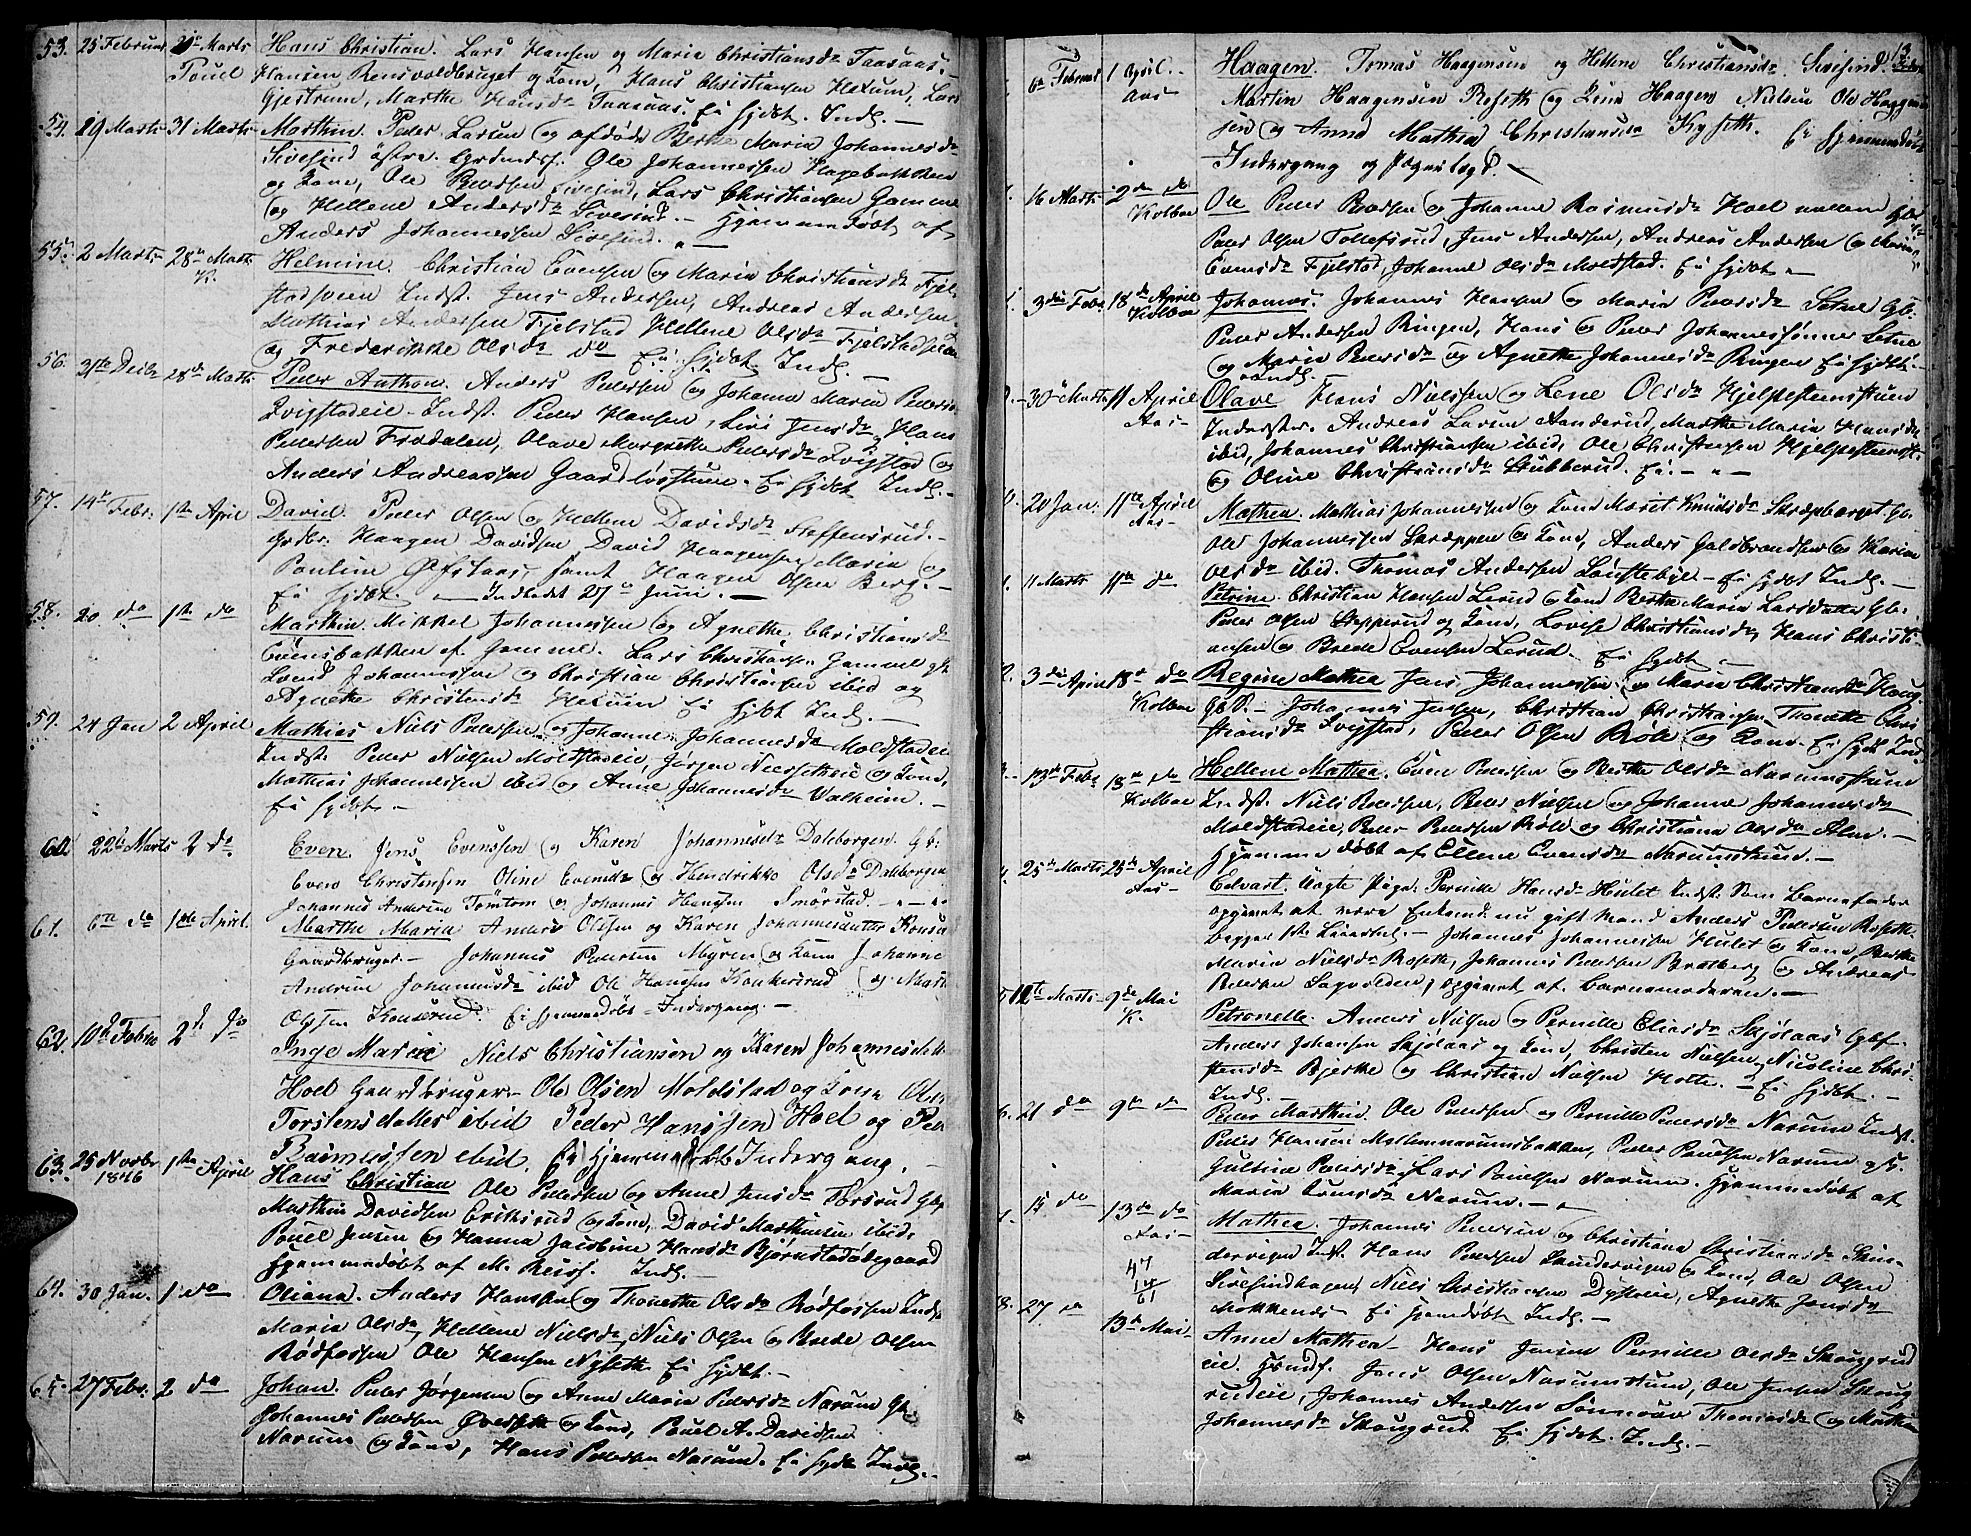 53. 25 Februar 21de Marts Hans Christian. Lars Hansen og Maria Christiansd. Taasaas.
Pouel Hansen Rensvoldbruget og Kone, Hans Christiansen Hexum, Lars
Gjestrum, Marthe Hansd. Taasaas. Ei hjdbt. Indg. —
54. 19 Marts 31 Marts Marthin. Peder Larsen og afdøde Berthe Maria Johannesd.
Sivesind østre. Ole Johannessen Hagebakken
og Kone, Ole Pedersen Sivesind, Lars Christiansen Gamme
og Hellene Andersd. Sivesind. — Hjemmedøbt af
Anders Johannessen Sivesind.
55. 2 Marts 28de Marts Helmine. Christian Evensen og Maria Christiansd. Fjel-
K. stadsveen Indst. Jens Andersen, Andreas Andersen
Mathias Andersen Fjelstad Hellene Olsd. Fjelstad
og Frederikke Olsd. do Ei hjdbt Indg. —
56. 31te Decbr 28de Marts Peder Anthon. Anders Pedersen og Johanne Maria Pedersd.
Qvigstadeie Indst. Peder Hansen, Siri Jensd. Hans
Pedersen Frodalen, Olave Margrethe Pedersd. Qvigstad og
Anders Andreassen Gaardløsstuen. Ei hjdbt Indg. —
57. 14de Febr. 1ste April David. Peder Olsen og Hellene Davidsd. Steffensrud.
Grdbr. Haagen Davidsen, David Haagensen Maria og
Pauline Øfstaas, samt Haagen Olsen Berg. —
Ei hjdbt. — Indledet 27de Juni. —
58. 20 do 1ste do Marthin. Mikkel Johannessen og Agnethe Christiansd.
Evensbakken af Gamme. Lars Christiansen Gamme
Svend Johannessen og Christian Christiansen ibid og
Agnethe Christensd. Hexum Ei hjdbt Indg. —
59. 24 Jan 2 April Mathias Niels Pedersen og Johanne Johannesd. Moldstadeie
Indst. Peder Nielsen Moldstadeie, Jørgen og Kone,
Mathias Johannessen ibid og Anne Johannesd. Valheim. —
Ei hjdbt. —
60 22de Marts 2 do. Even. Jens Evenssen og Karen Johannesdr Daleborgen. Gb:
Even Christensen Oline Evensdr og Hendrikke Olsdr Daleborgen
Johannes Andersen Tømtom og Johannes Hanssen Smørstad. —
61. 6te do 1ste April. Marthe Maria. Anders Olssen og Karen Johannesdatter
Gaardbruger. — Johannes Pedersen Myren og Kone Johanne
Andrine Johannesdr ibid Ole Hanssen og
Olssen. Ei hjemmedøbt = Indergang —
62. 10de Febr. 2de do Inge Marie Niels Christiansøn og Karen Johannesdatter
Hoel Gaardbruger. Ole Olsen Moldstad og Kone
Torstensdatter ibid Peder Hanssen Hoel og
Rasmussen ibid. Ei Hjemmedøbt Indergang. —
63. 25 Novbr 1846 1ste April Hans Christian Ole Pedersen og Anne Jensd. Forsrud Gb.
Marthin Davidsen Eriksrud og Kone, David Marthinsen ibid,
Pouel Jensen og Hanna Jacobine Hansd. Bjørnstadødegaard
Hjemmedøbt af M. Reiss. Indg. —
64. 30 Jan. 1 do Oliana. Anders Hansen og Thonette Olsd. Rødfossen Indst.
Maria Olsd. Hellene Nielsd. Niels Olsen og Brede Olsen
Rødfossen Ole Hansen Nyseth. Ei hjdbt. —
65. 27 Febr. 2 do Johan. Peder Jørgensen og Anne Maria Pedersd. Narum Gb.
Johannes Pedersen og Kone, Pouel A. Davidsen
Narum og Kone, Hans Pedersen Narum. Ei hjdbt Indg. —
13
6te Februar 1 April Haagen. Tomas Haagensen og Hellene Christiansdr. Sivesind.
Aas Martin Haagensen Roseth og Kone Haagen Nielsen Ole Haagen-
sen og Anne Mathea Christiansen Kyseth. Ei hjemmedøbt
Indergang og
16 Marts 2de do Ole Peder Pedersen og Johanne Rasmusd. Hoel
Kolboe Peder Olsen Tollefsrud, Jens Andersen, Andreas Andersen og
Evensd. Fjelstad, Johanne Olsd. Moldstad. Ei hjdbt —
3die Febr 18de April Johannes. Johannes Hansen og Maria Pedersd. Setne Gb.
Kolboe Peder Andersen Ringen, Hans og Peder Johannessønner Setne
og Maria Pedersd. og Agnethe Johannesd. Ringen Ei hjdbt. —
Indg.
30 Marts 11 April Olave Hans Nielsen og Lene Olsd. Hjelpesteinsstuen
Aas— Inderster. Andreas Larsen Aanderud, Marthe Maria Hansd.
ibid, Johannes Christiansen ibid, Ole Christensen Hjelpesteinst.
og Oline Christiansd. Stubberud. Ei — " —
20 Jan. 11te April Mathea. Mathias Johannessen og Kone Marit Knudsd. Skræpberget Gb.
Aas— Ole Johannessen Skræppen og Kone, Anders Guldbrandsen og Karine
11 Marts 11te do Olsd. ibid. Thomas Andersen Lønstebye — Ei hjdbt Indg. —
Petrine. Christian Hansen Lerud og Kone Berthe Maria Larsdatter Gb.
Peder Olsen Stepperud og Kone, Lovise Christiansd, Hans Christi-
ansen og Brede Evensen Lerud. Ei hjdbt —
3die April 18de do Regine Mathea. Jens Johannessen og Maria Christiansd. Haug
Kolboe GbP. — Johannes Jensen, Christian Christiansen Thonette Chri-
stiansd. Qvigstad, Peder Olsen Røle og Kone. Ei hjdbt Indg.
13de Febr 18de do Hellene Mathea. Even Pedersen og Berthe Olsd. Narumsstuen
Kolboe Indst. Niels Pedersen, Peder Nielsen og Johanne Johannesd.
Moldstadeie, Peder Pedersen Røle og Christiana Olsd. Alm. —
Hjemmedøbt af Ellene Evensd. Narumstuen. —
25de Marts 25de April Edvart. Uægte Pige Pernille Hansd. Hulet Indst. Som Barnefader
Aas— opgivet at være Enkemd. nu gift Mand Anders Pedersen Roseth
begges 1ste Leiermaal. — Johannes Johannessen Hulet og Kone, Berthe
Maria Nielsd. Roseth, Johannes Pedersen Bratberg og Andreas
Pedersen Sagvolden, opgivet af Barnemoderen. —
12te Marts 9de Mai Petronelle. Anders Nielsen og Pernille Eliasd. Skjølaas Gbf.
K. Anders Johansen Skjølaas og Kone, Christen Nielsen, Nicoline Chri-
stensd. Bjerke og Christian Nielsen Holte. — Ei hjdbt. —
Indg.
21 do 9de do Peder Marthin. Ole Pedersen og Pernille Pedersd. Narum Indst.
Peder Hansen Mellemnarumsbakken, Peder Pouelsen Narum
Gulbina Pedersd. Lars Pouelsen Narum. Hjemmedøbt af
Maria Larsd. Narum. —
15 do 13de do Mathea. Johannes Pedersen og Christiana Christiansd. Skin-
Aas— dervigen Indst. Hans Pedersen Skindervigen og Kone, Ole Olsen
Sivesindhagen, Niels Christiansen Dysteie, Agnethe Jensd.
Ei hjemdøbt Indg. —
47
14
61
27 do 13de Mai. Anne Mathea. Hans Jensen Pernille Olsd. Skougrud
eie. Jens Olsen Narumstuen, Ole Jensen Skoug-
rudeie, Johannes Andersen Thomasd. og Mathea
Johannesd. Skougrud Ei hjdbt. Indg. —